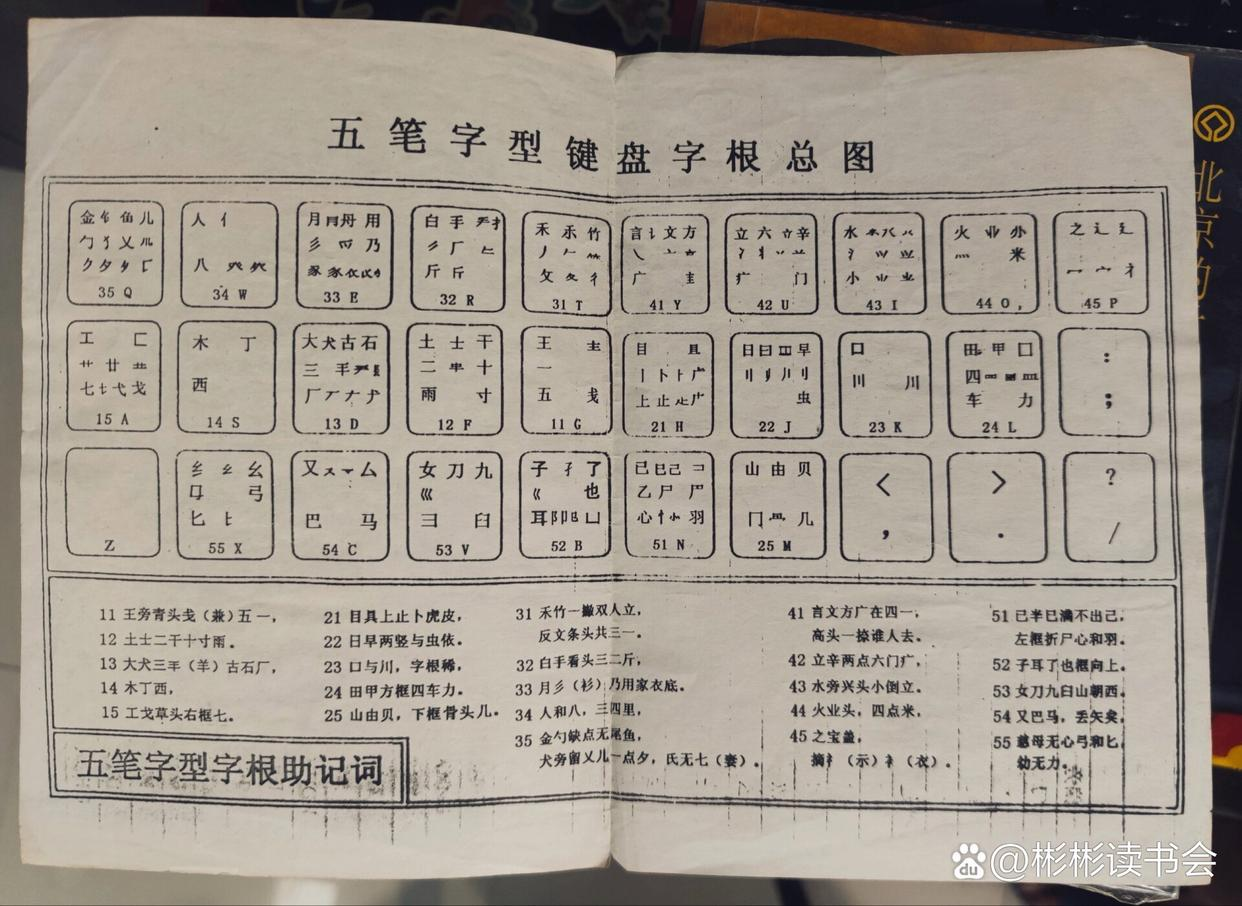 五笔字型键盘字根总图
金钅鱼儿
勹乂
クタ
35 Q
人亻
八
34 W
月丹用
彡乃
豕
33 E
白手扌
厂
斤斤
32 R
禾禾竹
丿
攵夂彳
31 T
言讠文方
广
41 Y
立六辛
氵丬
疒门
42 U
水
氵
小
43 I
火业
灬米
44 O,
之辶廴
冖宀
45 P
工匚
艹廿
七弋戈
15 A
木丁
西
14 S
大犬古石
三
厂ナ
13 D
土士干
二十
雨寸
12 F
王
一
五戋
11 G
目且
丨卜
上止
21 H
日曰早
刂
虫
22 J
口
川川
23 K
田甲囗
四皿
车力
24 L
:
;
Z
纟幺
弓
匕
55 X
又ス厶
巴马
54 C
女刀九
巛
彐臼
53 V
子孑了
巜也
耳阝卩凵
52 B
已巳己コ
乙尸尸
心忄羽
51 N
山由贝
冂几
25 M
<
,
>
.
?
/
11 王旁青头戋（兼）五一，
12 土士二干十寸雨。
13 大犬三（羊）古石厂，
14 木丁西，
15 工戈草头右框七。
21 目具上止卜虎皮，
22 日早两竖与虫依。
23 口与川，字根稀，
24 田甲方框四车力。
25 山由贝，下框骨头儿。
31 禾竹一撇双人立，
反文条头共三一。
32 白手看头三二斤，
33 月彡（衫）乃用家衣底。
34 人和八，三四里，
35 金勺缺点无尾鱼，
犬旁留乂儿一点夕，氏无七（妻）。
41 言文方广在四一，
高头一捺谁人去。
42 立辛两点六门疒，
43 水旁兴头小倒立。
44 火业头，四点米，
45 之宝盖，
摘礻（示）衤（衣）。
51 已半巳满不出己，
左框折尸心和羽。
52 子耳了也框向上。
53 女刀九臼山朝西。
54 又巴马，丢矢矣，
55 慈母无心弓和匕，
幼无力。
五笔字型字根助记词
北京的
du @彬彬读书会